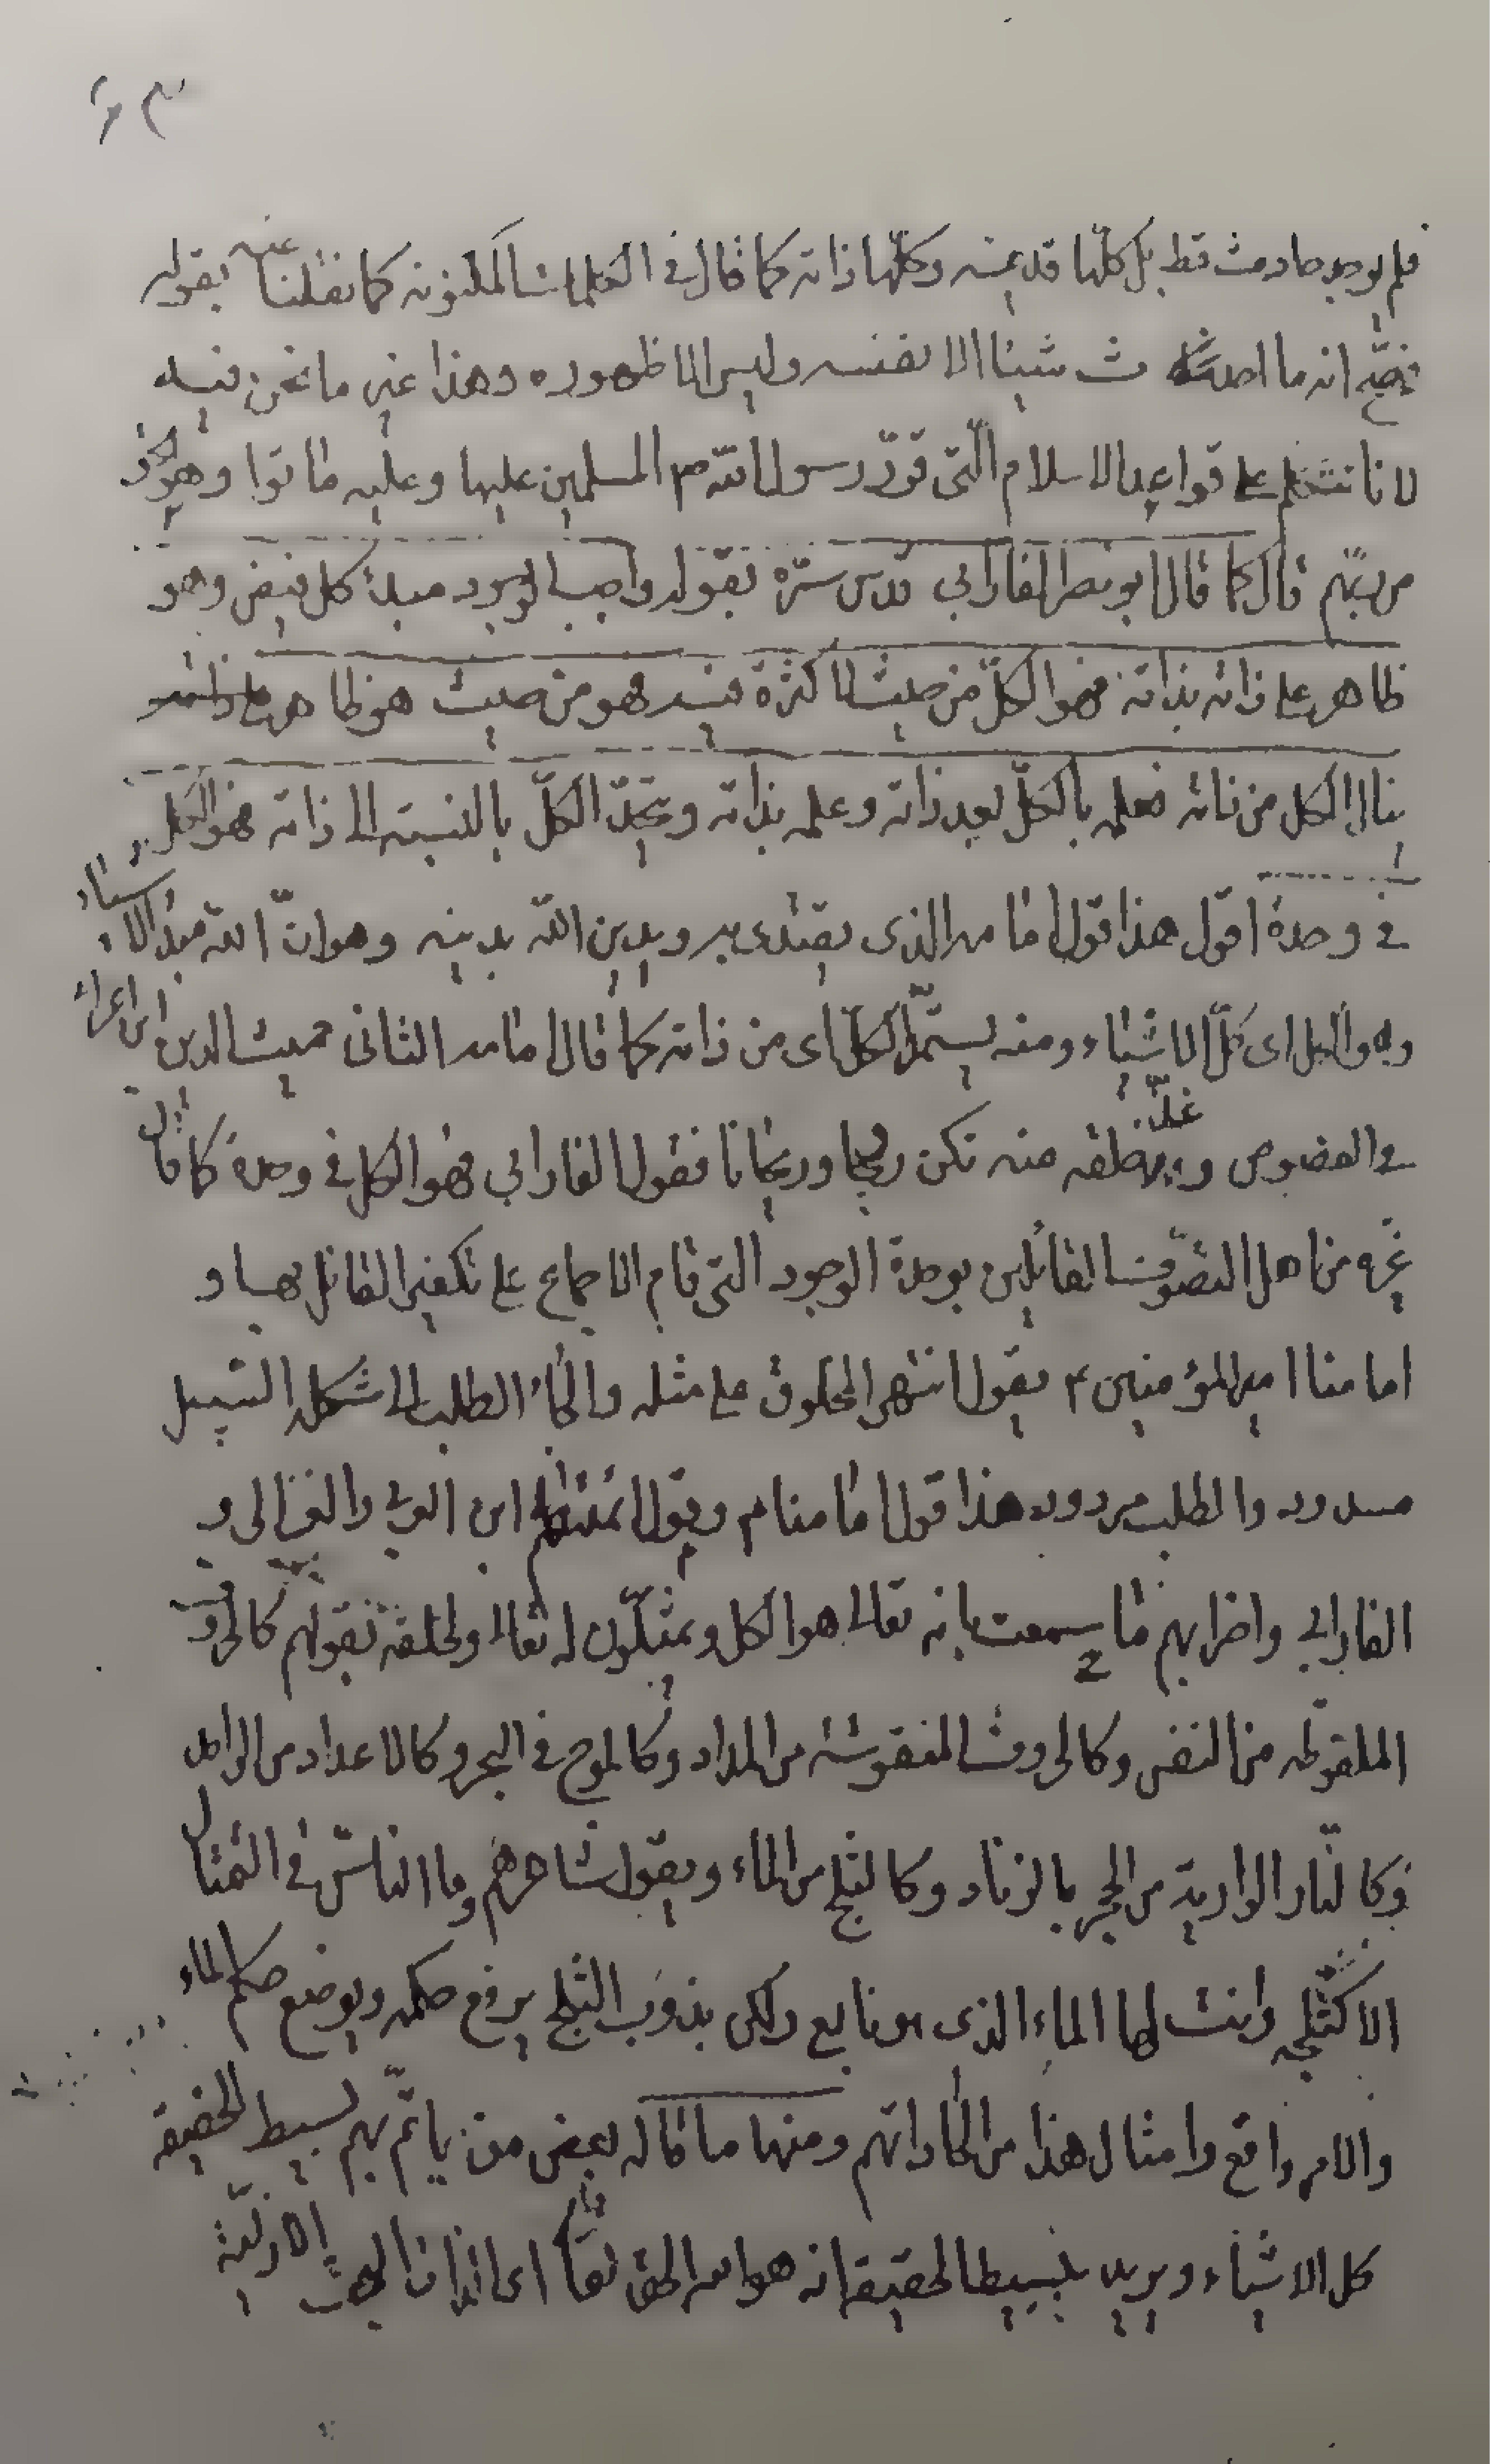 فلم يوجد حادث قط بل كلها قديمة وكلها ذاته كما قال في الكلمات المكنونة كما نقلنا عنه بقوله
فصح انه ما احدث شيئا الا نفسه وليس الا ظهوره وهذا غير ما نحن فيه
لانا نتكلم على قواعد الاسلام التي قرر رسول الله ص المسلمين عليها وعليه ماتوا وهو
من ربهم قال كما قال ابو نصر الفارابي قدس سره بقوله واجب الوجود مبدئ كل فيض وهو
ظاهر على ذاته بذاته فهو الكل من حيث لا كثرة فيه فهو من حيث هو ظاهر
ينال الكل من ذاته فعلمه بالكل بعد ذاته وعلمه بذاته ويتحد الكل بالنسبة الى ذاته فهو الكل
في وحدة اقول هذا قول امامه الذي يقتدي به ويدين الله بدينه وهو ان الله مبدء الاشياء
وهو الكل اي كل الاشياء ومنه يستمد الكل اي من ذاته كما قال امامه الثاني مميت الدين ابن اعرابي
في الفصوص وغذ خلقه منه تكن ريحا وريحانا فقول الفارابي فهو الكل في وحدة كما قال
غيره من اهل التصوف القائلين بوحدة الوجود التي قام الاجماع على تكفير القائل بها و
امامنا امير المؤمنين ع يقول انتهى المخلوق الى مثله والجاه الطلب الى شكله السبيل
مسدود والطلب مردود هذا قول امامنا م ويقول ائمتهم ابن العربي والغزالي و
الفارابي واضرابهم ما سمعت بانه تعالى هو الكل ويمثلون له تعالى ولخلقه بقولهم كالحروف
الملفوظة من النفس وكالحروف المنقوشة من المداد وكالموج في البحر وكالاعداد من الواحد
وكالنار الوارية من الحجر بالزناد وكالثلج من الماء ويقول شاعرهم وما الناس في التمثال
الا كثلجة وانت لها الماء الذي هو نابع ولكن بذوب الثلج يرفع حكمه ويوضع حكم الماء
والامر واقع وامثال هذا من الحاداتهم ومنها ما قاله بعض من ياتم بهم بسيط الحقيقة
كل الاشياء ويريد ببسيط الحقيقة انه هو الله الحق تعالى اي الذات البحت الازلية